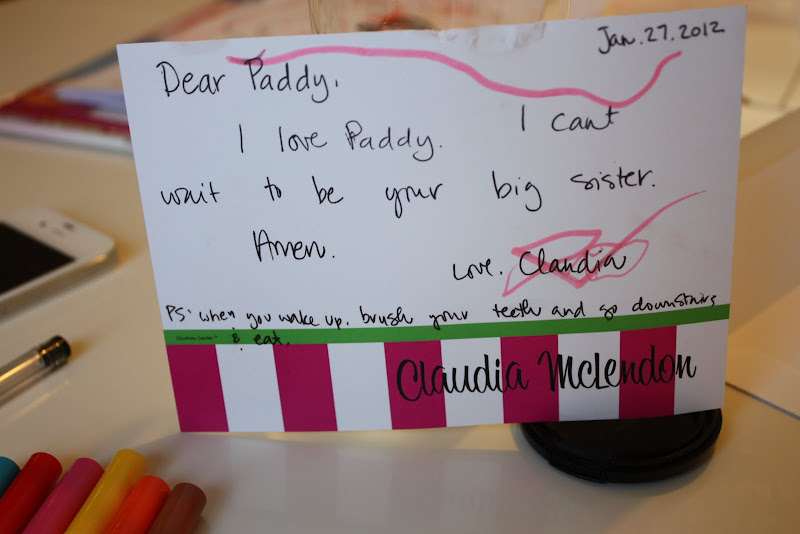 Jan. 27. 2012
Dear Paddy,
I love Paddy. I cant
wait to be your big sister.
Amen.
Love, Claudia
PS: when you wake up, brush your teeth and go downstairs
& eat.
Claudia McLendon